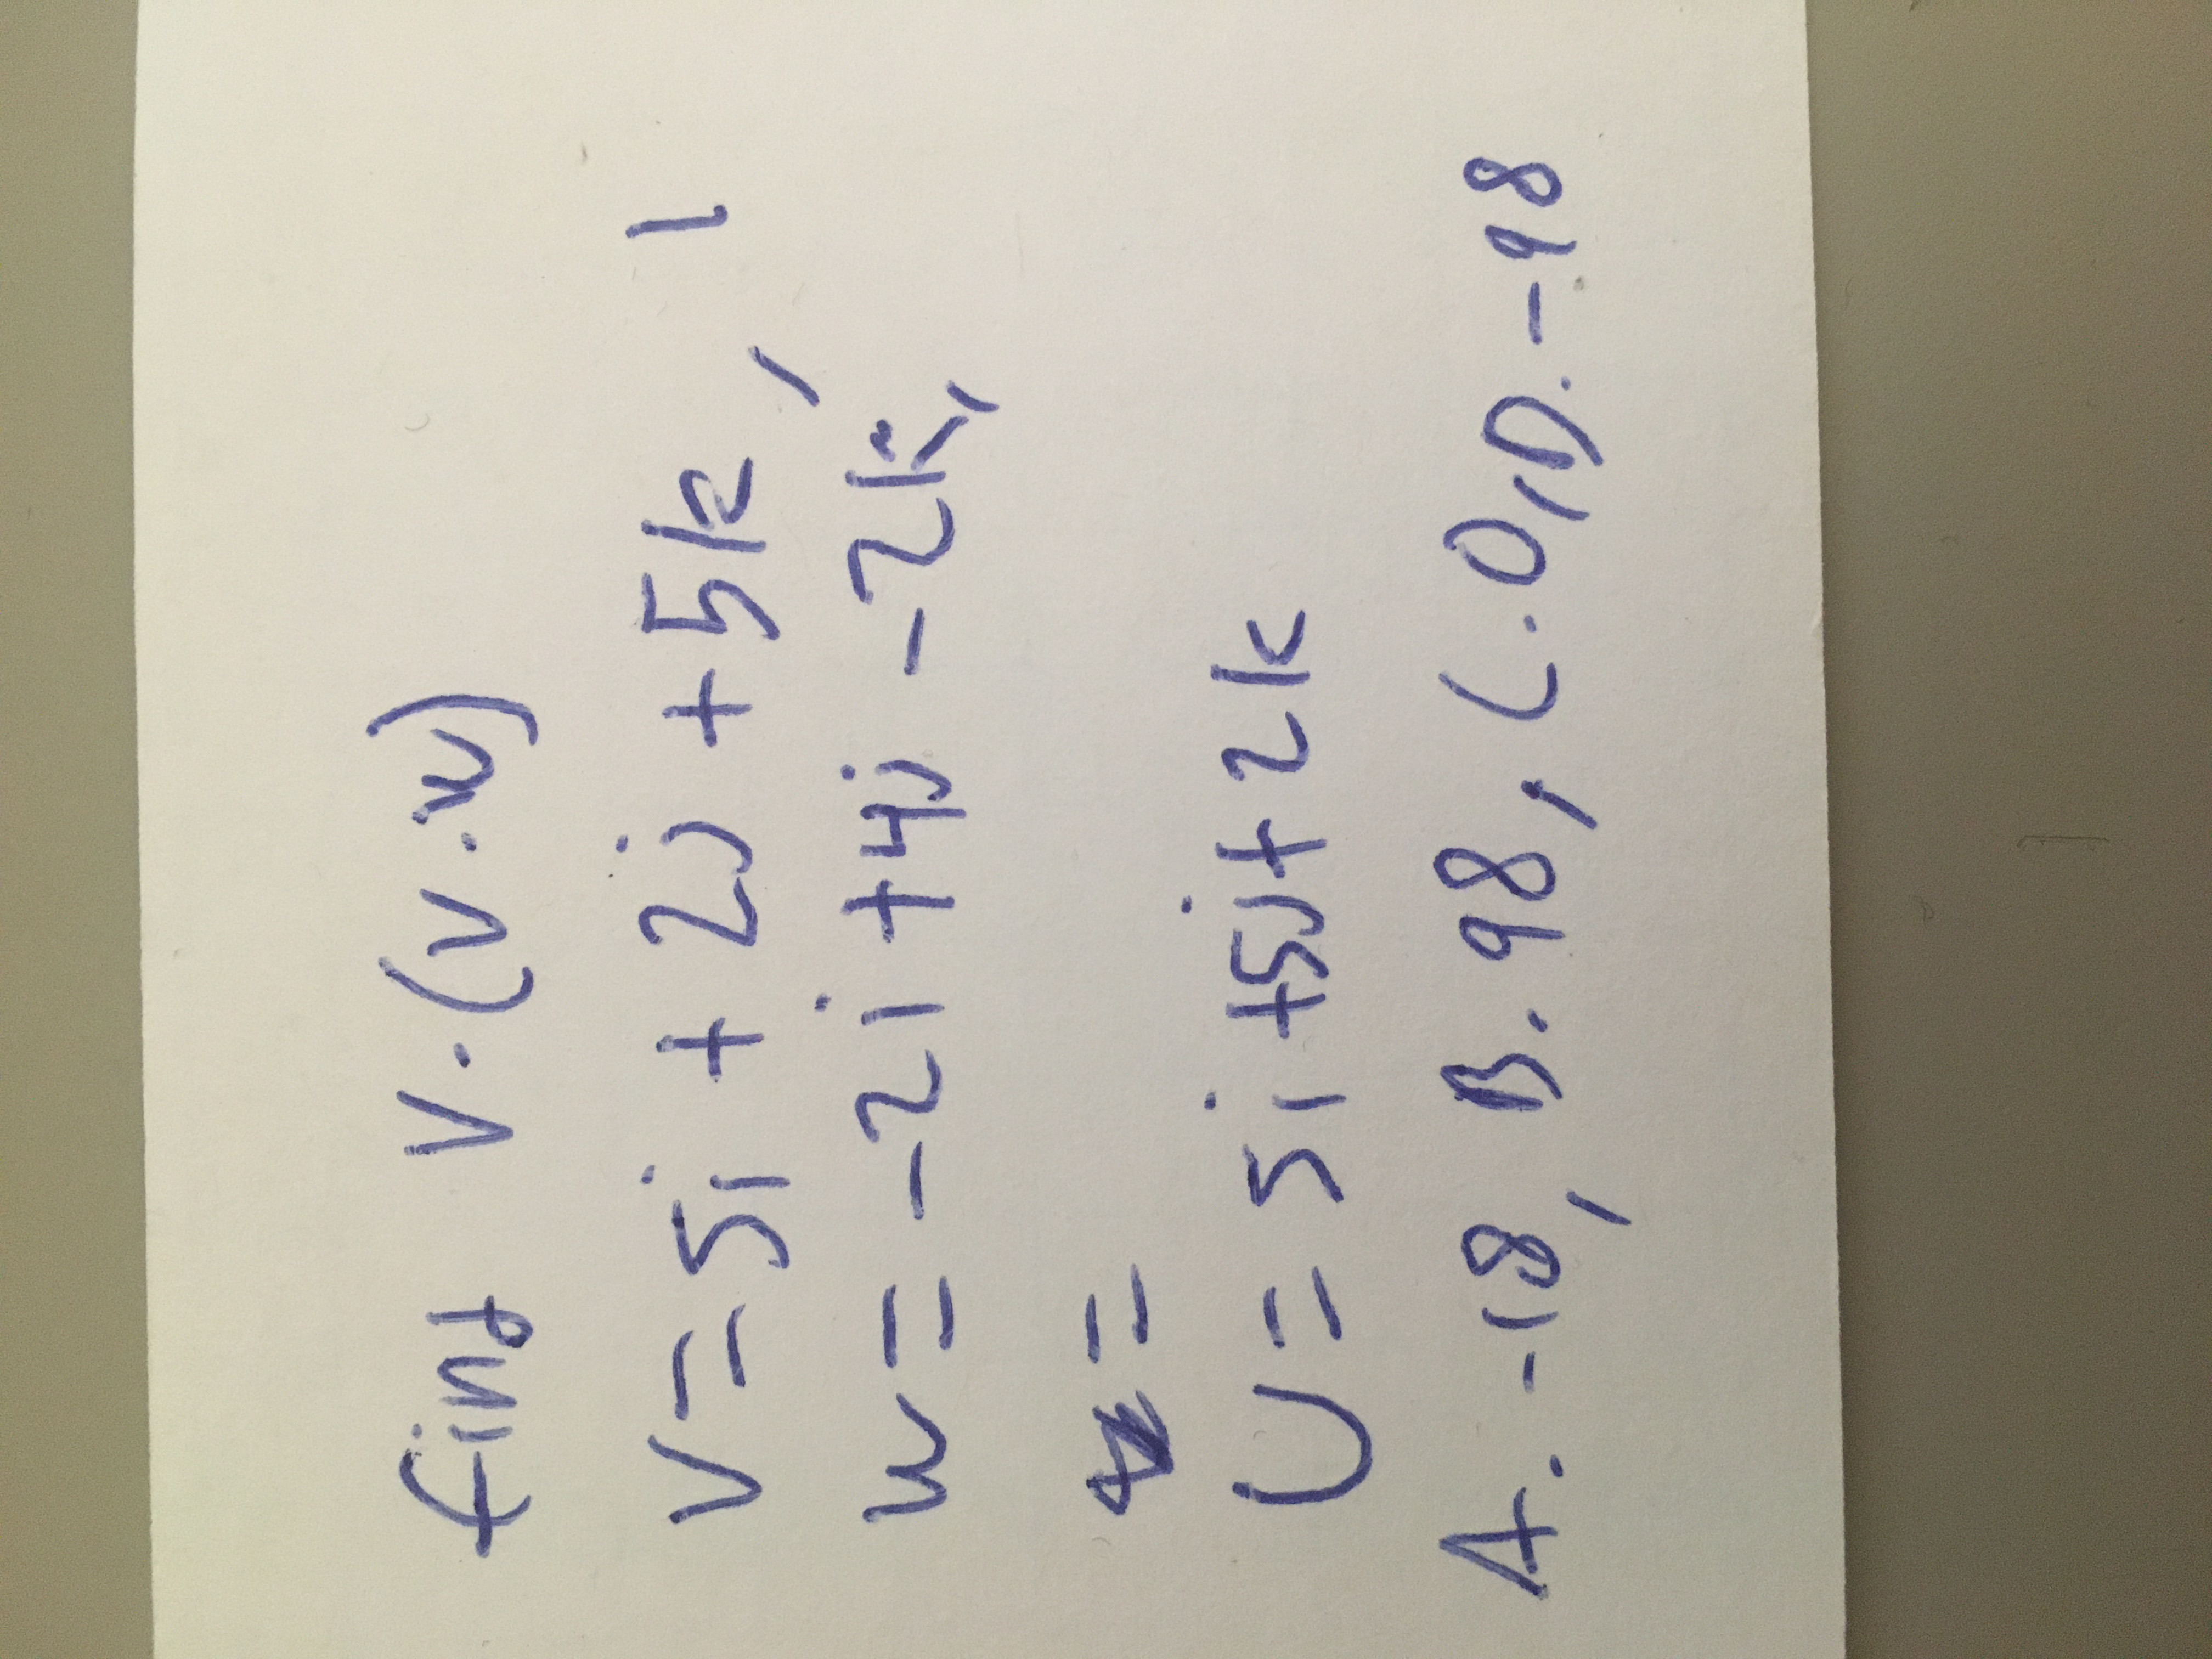 find v.(v.w)
v=5i + 2j + 5k, l
w = -2i +4j -2k,
=
U = 5i +5j+ 2k
A. -18, B. 98, C. 0, D. -98